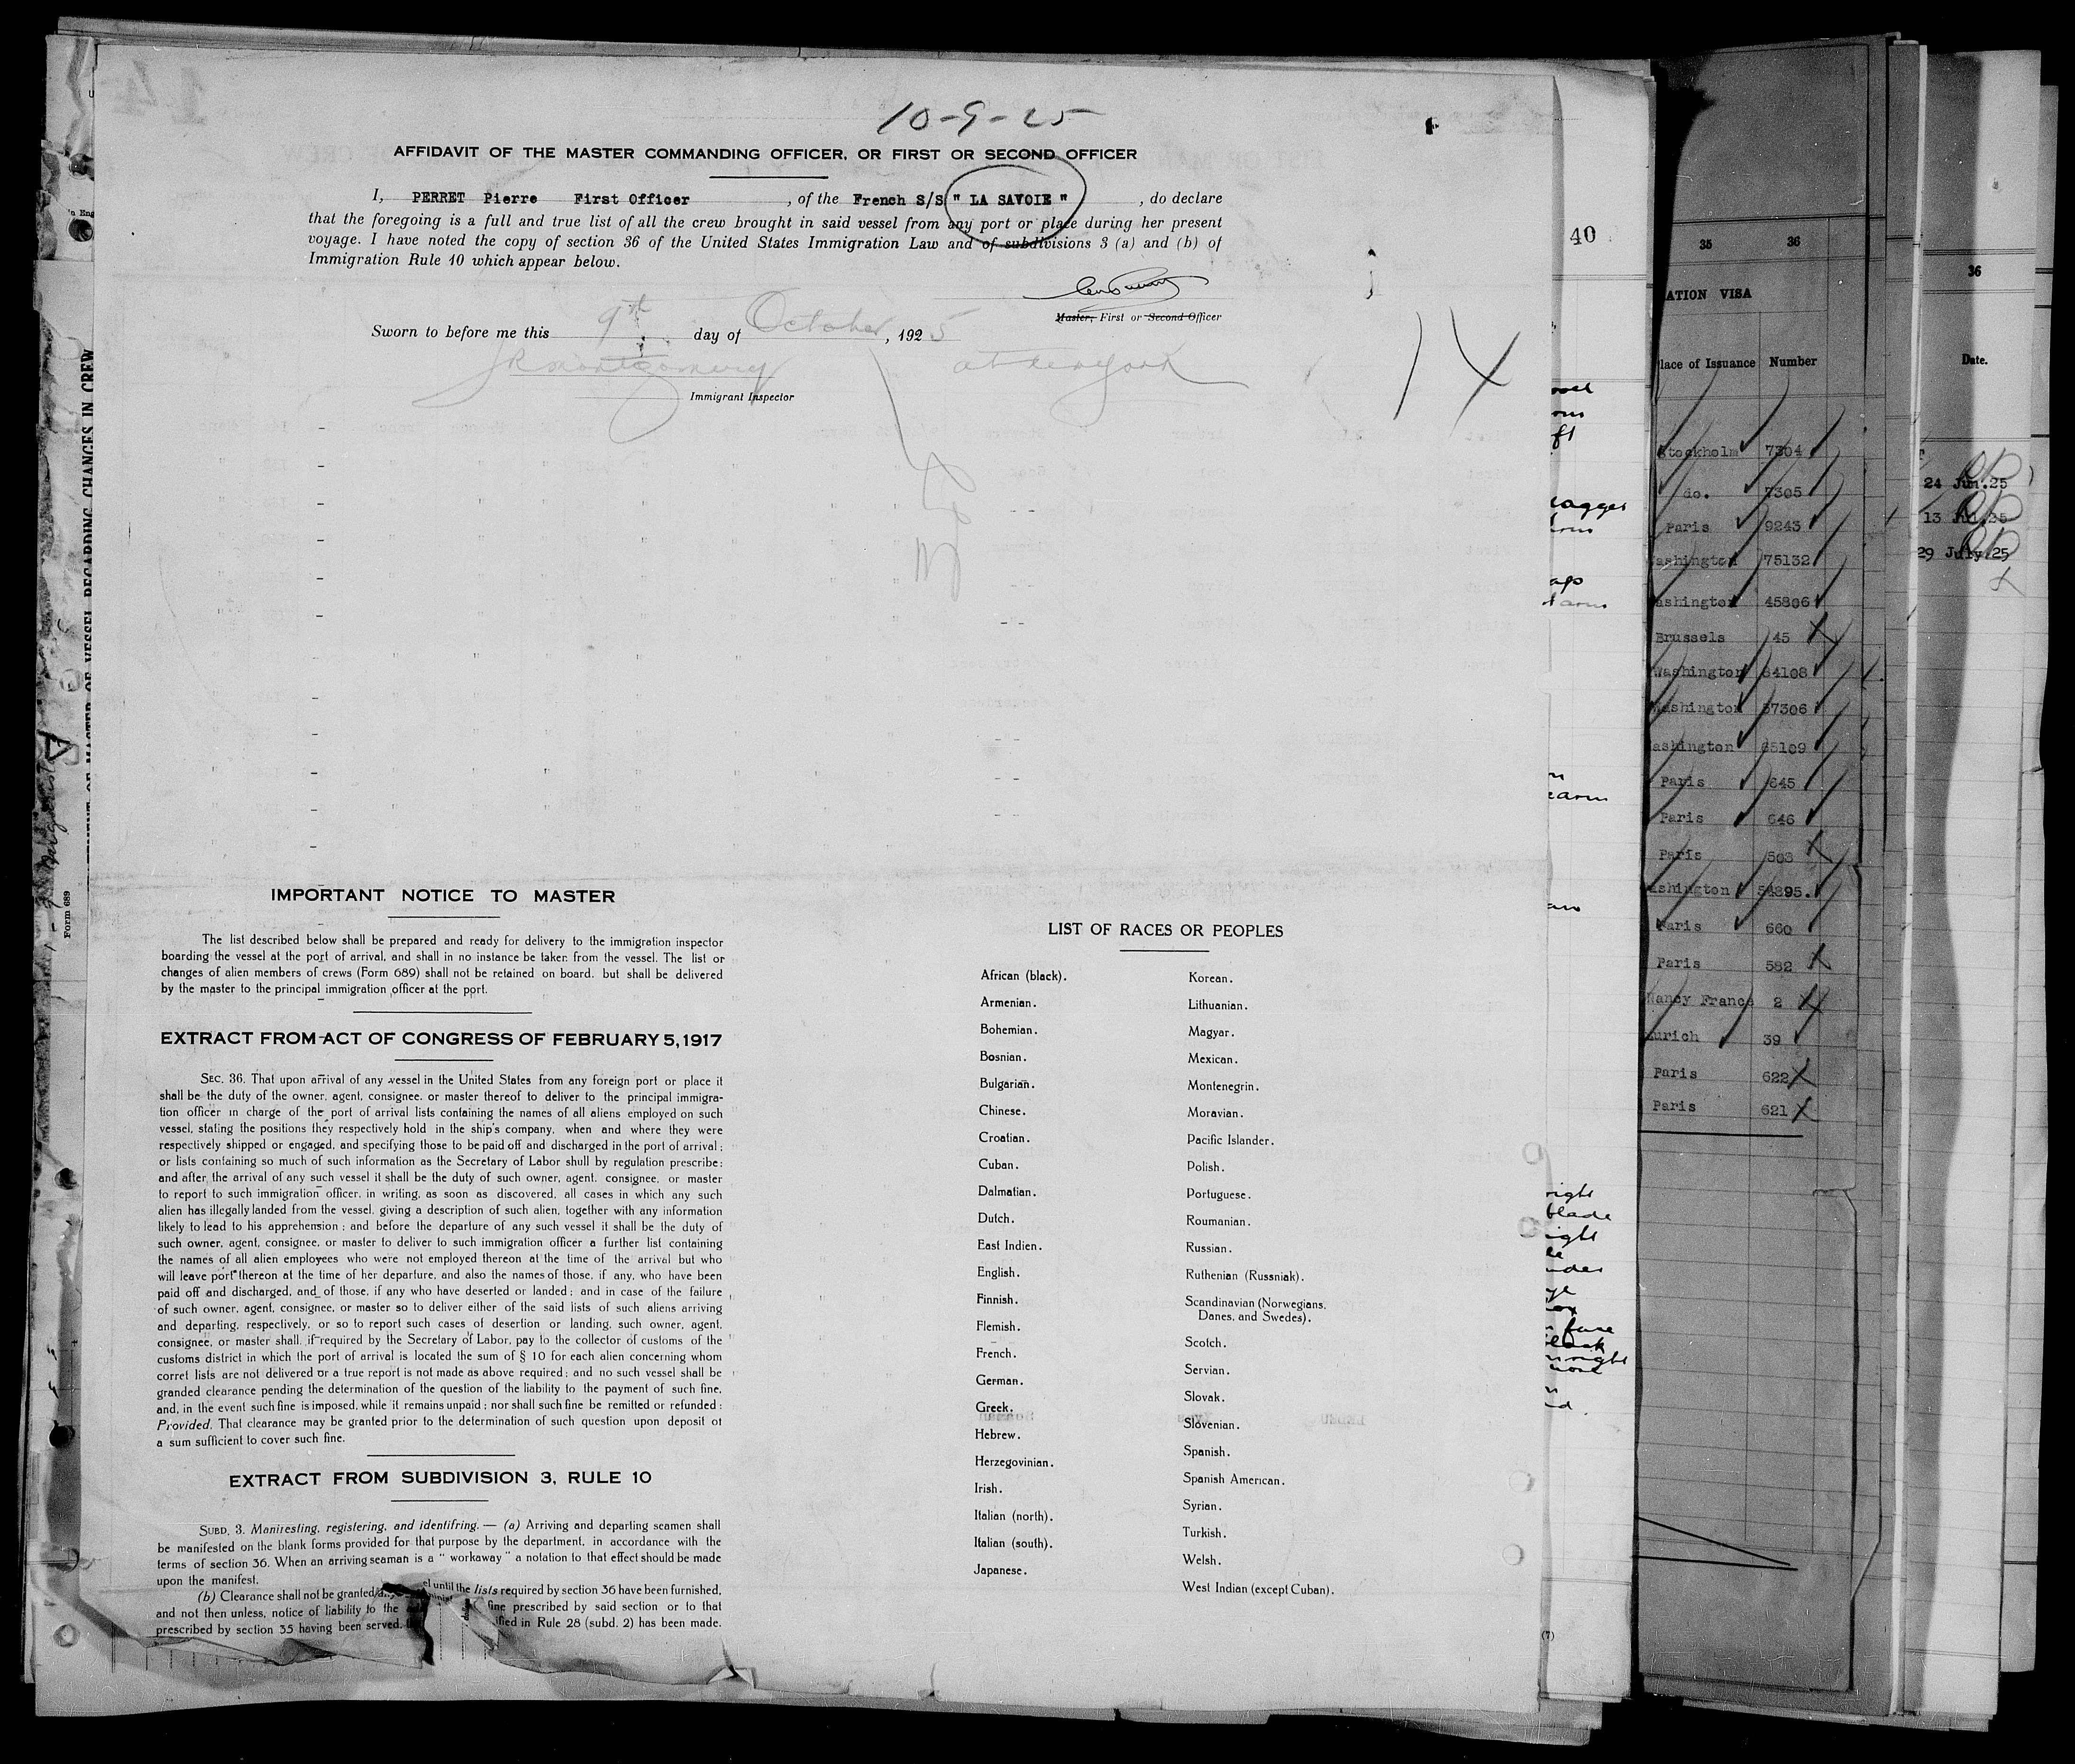 10-9-25
AFFIDAVIT OF THE MASTER COMMANDING OFFICER, OR FIRST OR SECOND OFFICER
I, PERRET Pierre First Officer , of the French S/S " LA SAVOIE " , do declare
that the foregoing is a full and true list of all the crew brought in said vessel from any port or place during her present
voyage. I have noted the copy of section 36 of the United States Immigration Law and of subdivisions 3 (a) and (b) of
Immigration Rule 10 which appear below.
Master, First or Second Officer
Sworn to before me this 9th day of October, 1925
JR Montgomery at New York
Immigrant Inspector
14
IMPORTANT NOTICE TO MASTER
The list described below shall be prepared and ready for delivery to the immigration inspector
boarding the vessel at the port of arrival, and shall in no instance be taken from the vessel. The list or
changes of alien members of crews (Form 689) shall not be retained on board. but shall be delivered
by the master to the principal immigration officer at the port.
EXTRACT FROM ACT OF CONGRESS OF FEBRUARY 5, 1917
SEC. 36. That upon arrival of any vessel in the United States from any foreign port or place it
shall be the duty of the owner, agent, consignee. or master thereof to deliver to the principal immigra-
tion officer in charge of the port of arrival lists containing the names of all aliens employed on such
vessel, stating the positions they respectively hold in the ship's company, when and where they were
respectively shipped or engaged, and specifying those to be paid off and discharged in the port of arrival ;
or lists containing so much of such information as the Secretary of Labor shull by regulation prescribe:
and after the arrival of any such vessel it shall be the duty of such owner, agent. consignee, or master
to report to such immigration officer, in writing, as soon as discovered, all cases in which any such
alien has illegally landed from the vessel, giving a description of such alien, together with any information
likely to lead to his apprehension ; and before the departure of any such vessel it shall be the duty of
such owner, agent, consignee, or master to deliver to such immigration officer a further list containing
the names of all alien employees who were not employed thereon at the time of the arrival but who
will leave port thereon at the time of her departure, and also the names of those, if any, who have been
paid off and discharged, and of those, if any who have deserted or landed ; and in case of the failure
of such owner, agent, consignee, or master so to deliver either of the said lists of such aliens arriving
and departing, respectively, or so to report such cases of desertion or landing, such owner, agent,
consignee, or master shall, if required by the Secretary of Labor, pay to the collector of customs of the
customs district in which the port of arrival is located the sum of § 10 for each alien concerning whom
corret lists are not delivered or a true report is not made as above required ; and no such vessel shall be
granded clearance pending the determination of the question of the liability to the payment of such fine,
and, in the event such fine is imposed, while it remains unpaid ; nor shall such fine be remitted or refunded :
Provided, That clearance may be granted prior to the determination of such question upon deposit of
a sum sufficient to cover such fine.
EXTRACT FROM SUBDIVISION 3, RULE 10
SUBD. 3. Manifesting, registering, and identifring. — (a) Arriving and departing seamen shall
be manifested on the blank forms provided for that purpose by the department, in accordance with the
terms of section 36. When an arriving seaman is a " workaway " a notation to that effect should be made
upon the manifest.
(b) Clearance shall not be granted until the lists required by section 36 have been furnished,
and not then unless, notice of liability to the fine prescribed by said section or to that
prescribed by section 35 having been served. in Rule 28 (subd. 2) has been made.
LIST OF RACES OR PEOPLES
African (black).
Armenian.
Bohemian.
Bosnian.
Bulgarian.
Chinese.
Croatian.
Cuban.
Dalmatian.
Dutch.
East Indien.
English.
Finnish.
Flemish.
French.
German.
Greek.
Hebrew.
Herzegovinian.
Irish.
Italian (north).
Italian (south).
Japanese.
Korean.
Lithuanian.
Magyar.
Mexican.
Montenegrin.
Moravian.
Pacific Islander.
Polish.
Portuguese.
Roumanian.
Russian.
Ruthenian (Russniak).
Scandinavian (Norwegians,
Danes, and Swedes).
Scotch.
Servian.
Slovak.
Slovenian.
Spanish.
Spanish American.
Syrian.
Turkish.
Welsh.
West Indian (except Cuban).
Form 689
OF MASTER OF VESSEL REGARDING CHANGES IN CREW
40
(7)
35 36
ATION VISA
lace of Issuance Number
Stockholm 7304
do. 7305
Paris 9243
ashington 75132
ashington 45806
Brussels 45
Washington 84108
Washington 57306
ashington 65109
Paris 645
Paris 646
Paris 503
ashington 54895.
Paris 660
Paris 582
Nancy France 2
urich 39
Paris 622
Paris 621
36
Date.
24 Jun.25
13 Jul.25
29 July.25